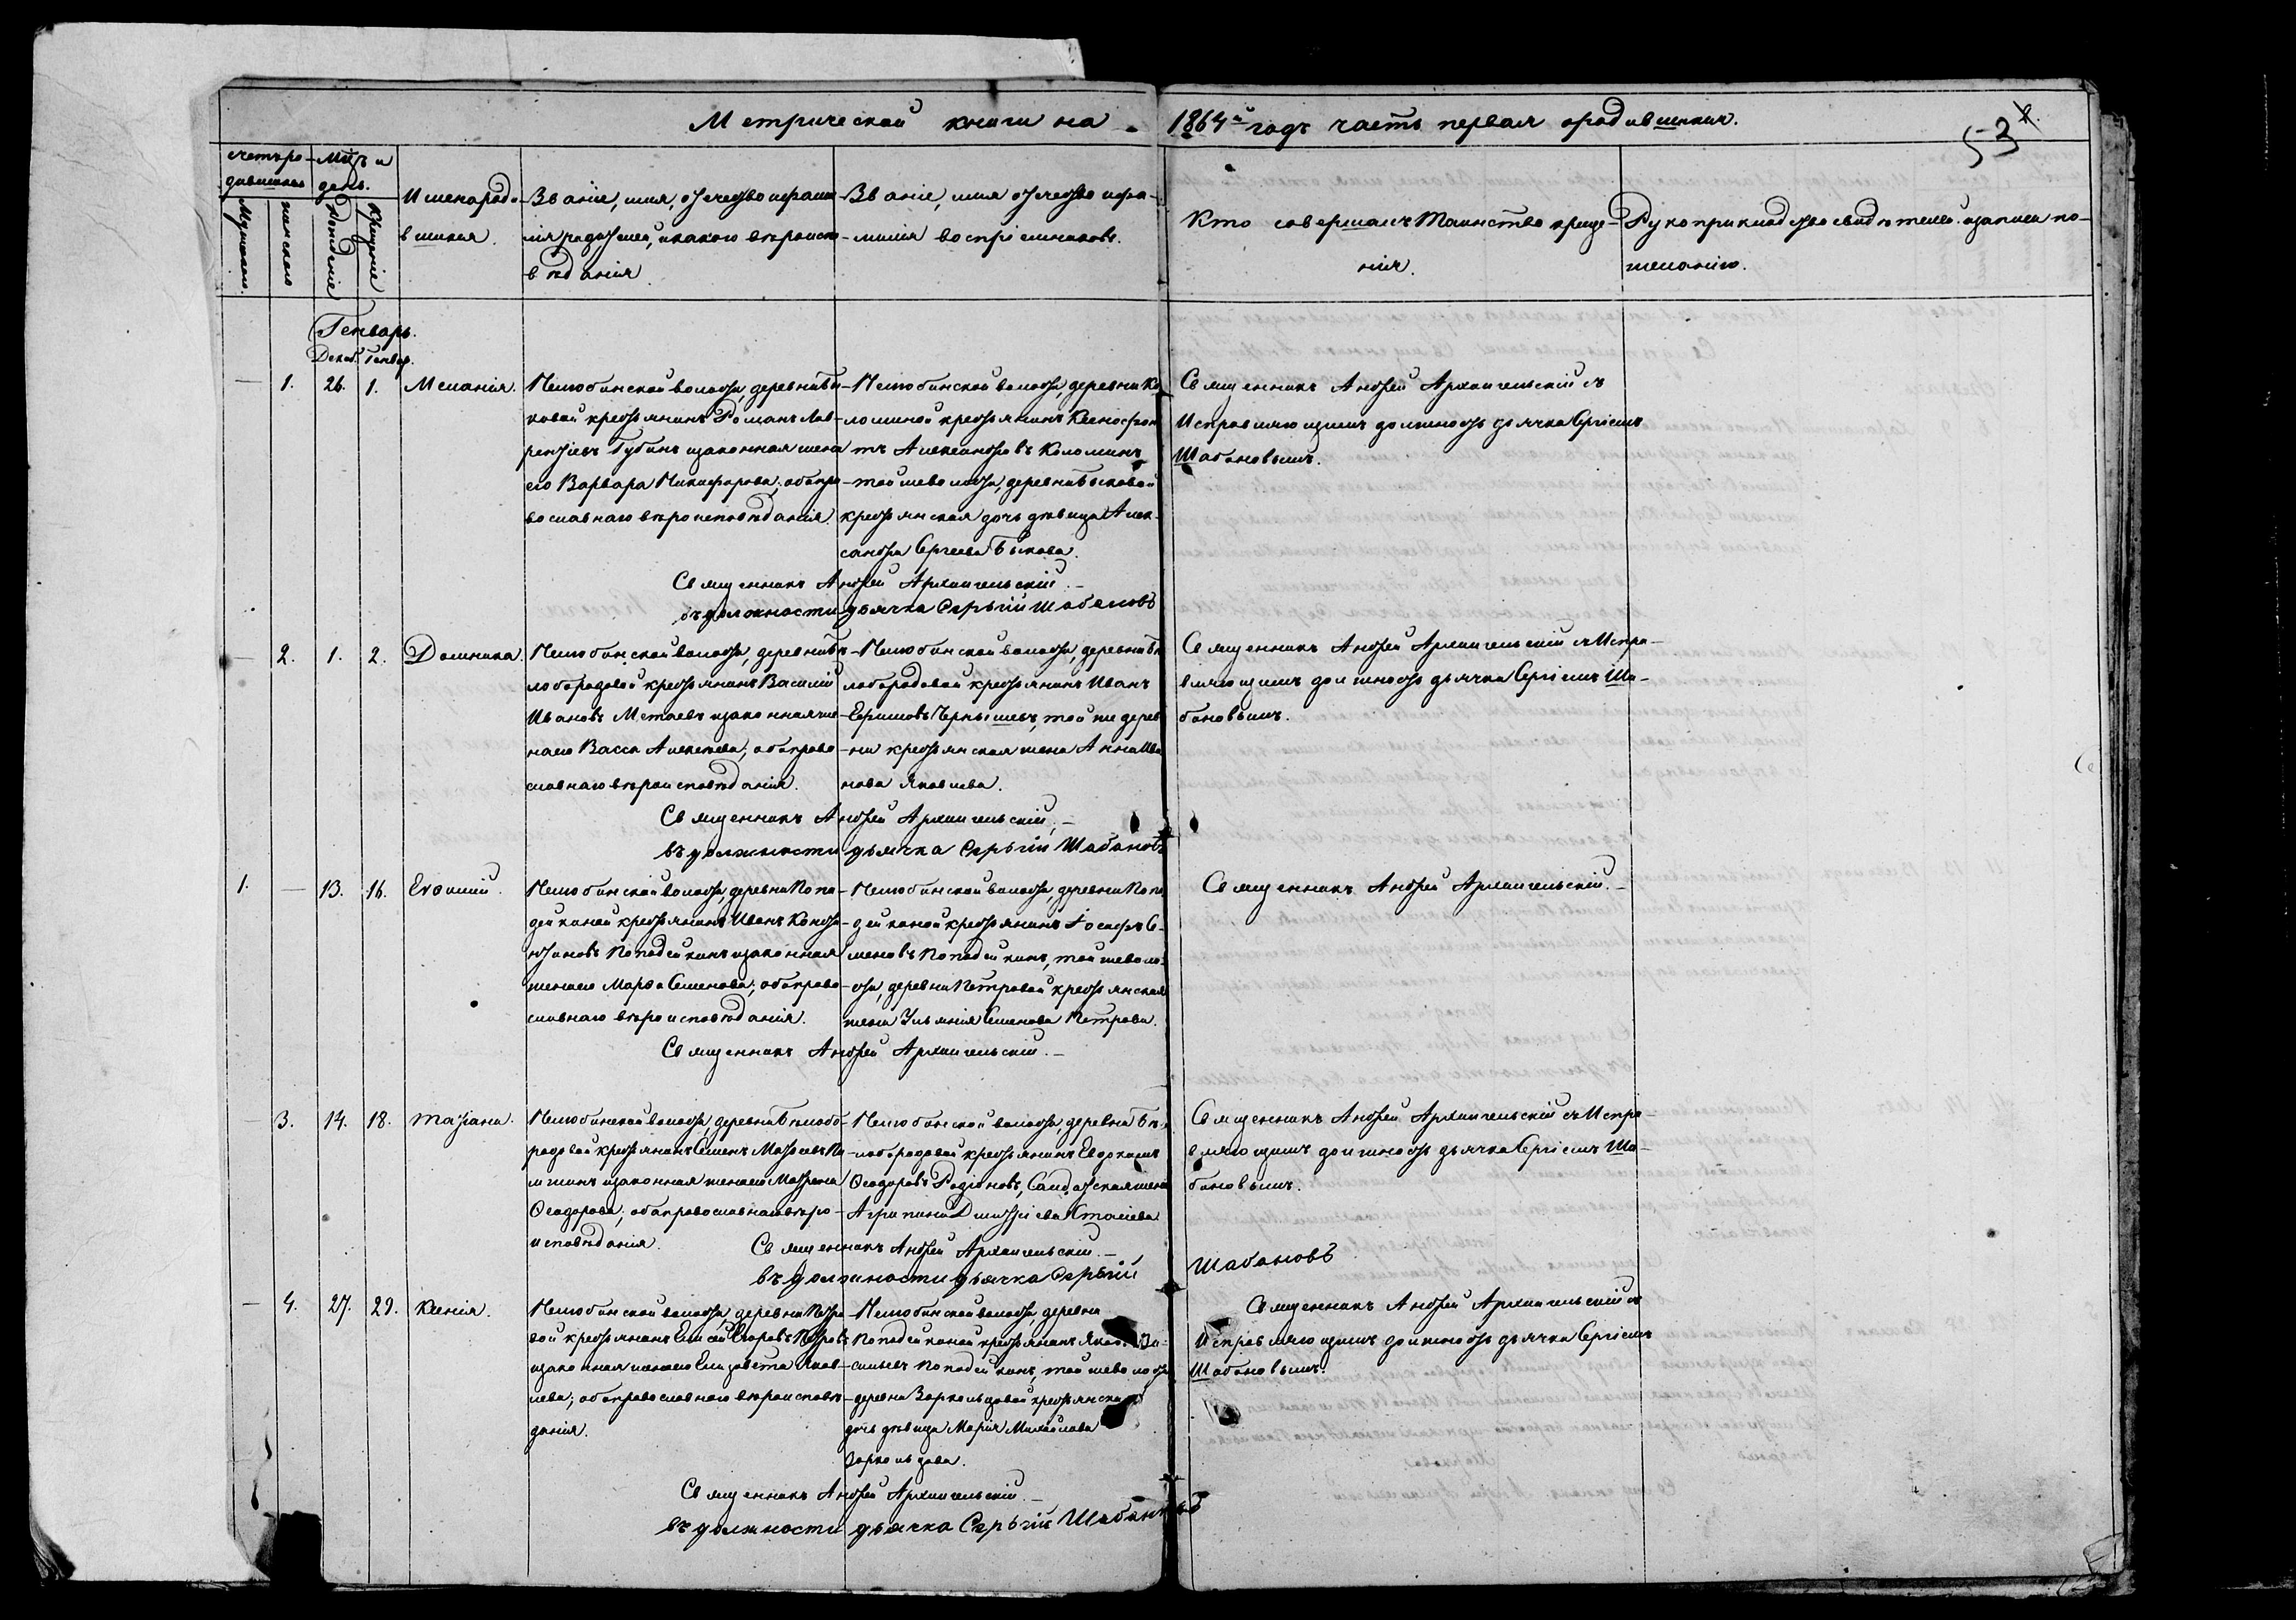 Метрической книги на 1864й годъ часть первая о родившихся.
53
Счетъ родившихся
Мѣс. и день.
Мужескаго.
Женскаго
Рожденіе
Крещеніе
Имена родившихся.
Званіе, имя, отчество и фамилія родителей, и какого вѣроисповѣданія.
Званіе, имя отчество и фамилія воспріемниковъ.
Кто совершалъ Таинство крещенія.
Рукоприкладство свидѣтелей о записи по желанію.
Генварь.
Декаб. Генвар.
— 1. 26. 1. Меланія.
волости, деревни
ковой крестьянинъ Романъ Лав-
рентіевъ Губинъ и законная жена
его Варвара Никифорова; оба пра-
вославнаго вѣроисповѣданія.
волости, деревни Ко-
ломиной крестьянинъ Ксенофон-
тъ Александровъ Коломинъ
той же волости, деревни Быковой
крестьянская дочь дѣвица Алек-
сандра Сергеева Быкова.
Священникъ Андрей Архангельскій съ
Исправляющимъ должность дьячка Сергіемъ
Шабановымъ.
Священникъ Андрей Архангельскій.—
въ должности дьячка Сергѣй Шабановъ
— 2. 1. 2. Домника.
волости, деревни Бѣ-
лобородовой крестьянинъ Василій
Ивановъ и законная же-
на его Васса Алексѣева; оба право-
славнаго вѣроисповѣданія.
волости, деревни Бѣ-
лобородовой крестьянинъ Иванъ
Ефимовъ Чернышевъ, той же дерев-
ни крестьянская жена Анна Ива-
нова Яковлева.
Священникъ Андрей Архангельскій съ Испра-
вляющимъ должность дьячка Сергіемъ Ша-
бановымъ.
Священникъ Андрей Архангельскій,—
въ должности дьячка Сергѣй Шабановъ
1. — 13. 16. Евѳимій.
волости, деревни Попо-
дейкиной крестьянинъ Иванъ Конста-
нтиновъ Поподейкинъ и законная
жена его Марѳа Семенова; оба право-
славнаго вѣроисповѣданія.
волости, деревни Попо-
дейкиной крестьянинъ Іосифъ Се-
меновъ Поподейкинъ, той же воло-
сти, деревни Петровой крестьянская
жена Ульянія Семенова Петрова.
Священникъ Андрей Архангельскій.—
Священникъ Андрей Архангельскій.—
— 3. 14. 18. Татіана.
волости, деревни Бѣлобо-
родовой крестьянинъ Семенъ
и законная жена его Матрена
Ѳеодорова; оба православнаго вѣро-
исповѣданія.
волости, деревни Бѣ-
лобородовой крестьянинъ Евдокимъ
Ѳеодоровъ Родіоновъ, Солдатская жена
Агрипина Дмитріева
Священникъ Андрей Архангельскій съ Испра-
вляющимъ должность дьячка Сергіемъ Ша-
бановымъ.
Священникъ Андрей Архангельскій.—
въ должности дьячка Сергѣй Шабановъ
— 4. 27. 29. Ксенія.
волости, деревни Петро-
вой крестьянинъ Елисей Егоровъ Петровъ
и законная жена его Елизавета Яков-
лева; оба православнаго вѣроисповѣ-
данія.
волости, деревни
Поподейкиной крестьянинъ Яковъ Ва-
сильевъ Поподейкинъ, той же волости
деревни Зоркольцовой крестьянская
дочь дѣвица Марія Михайлова
Зоркольцова.
Священникъ Андрей Архангельскій съ
Исправляющимъ должность дьячка Сергіемъ
Шабановымъ.
Священникъ Андрей Архангельскій.—
въ должности дьячка Сергѣй Шабановъ